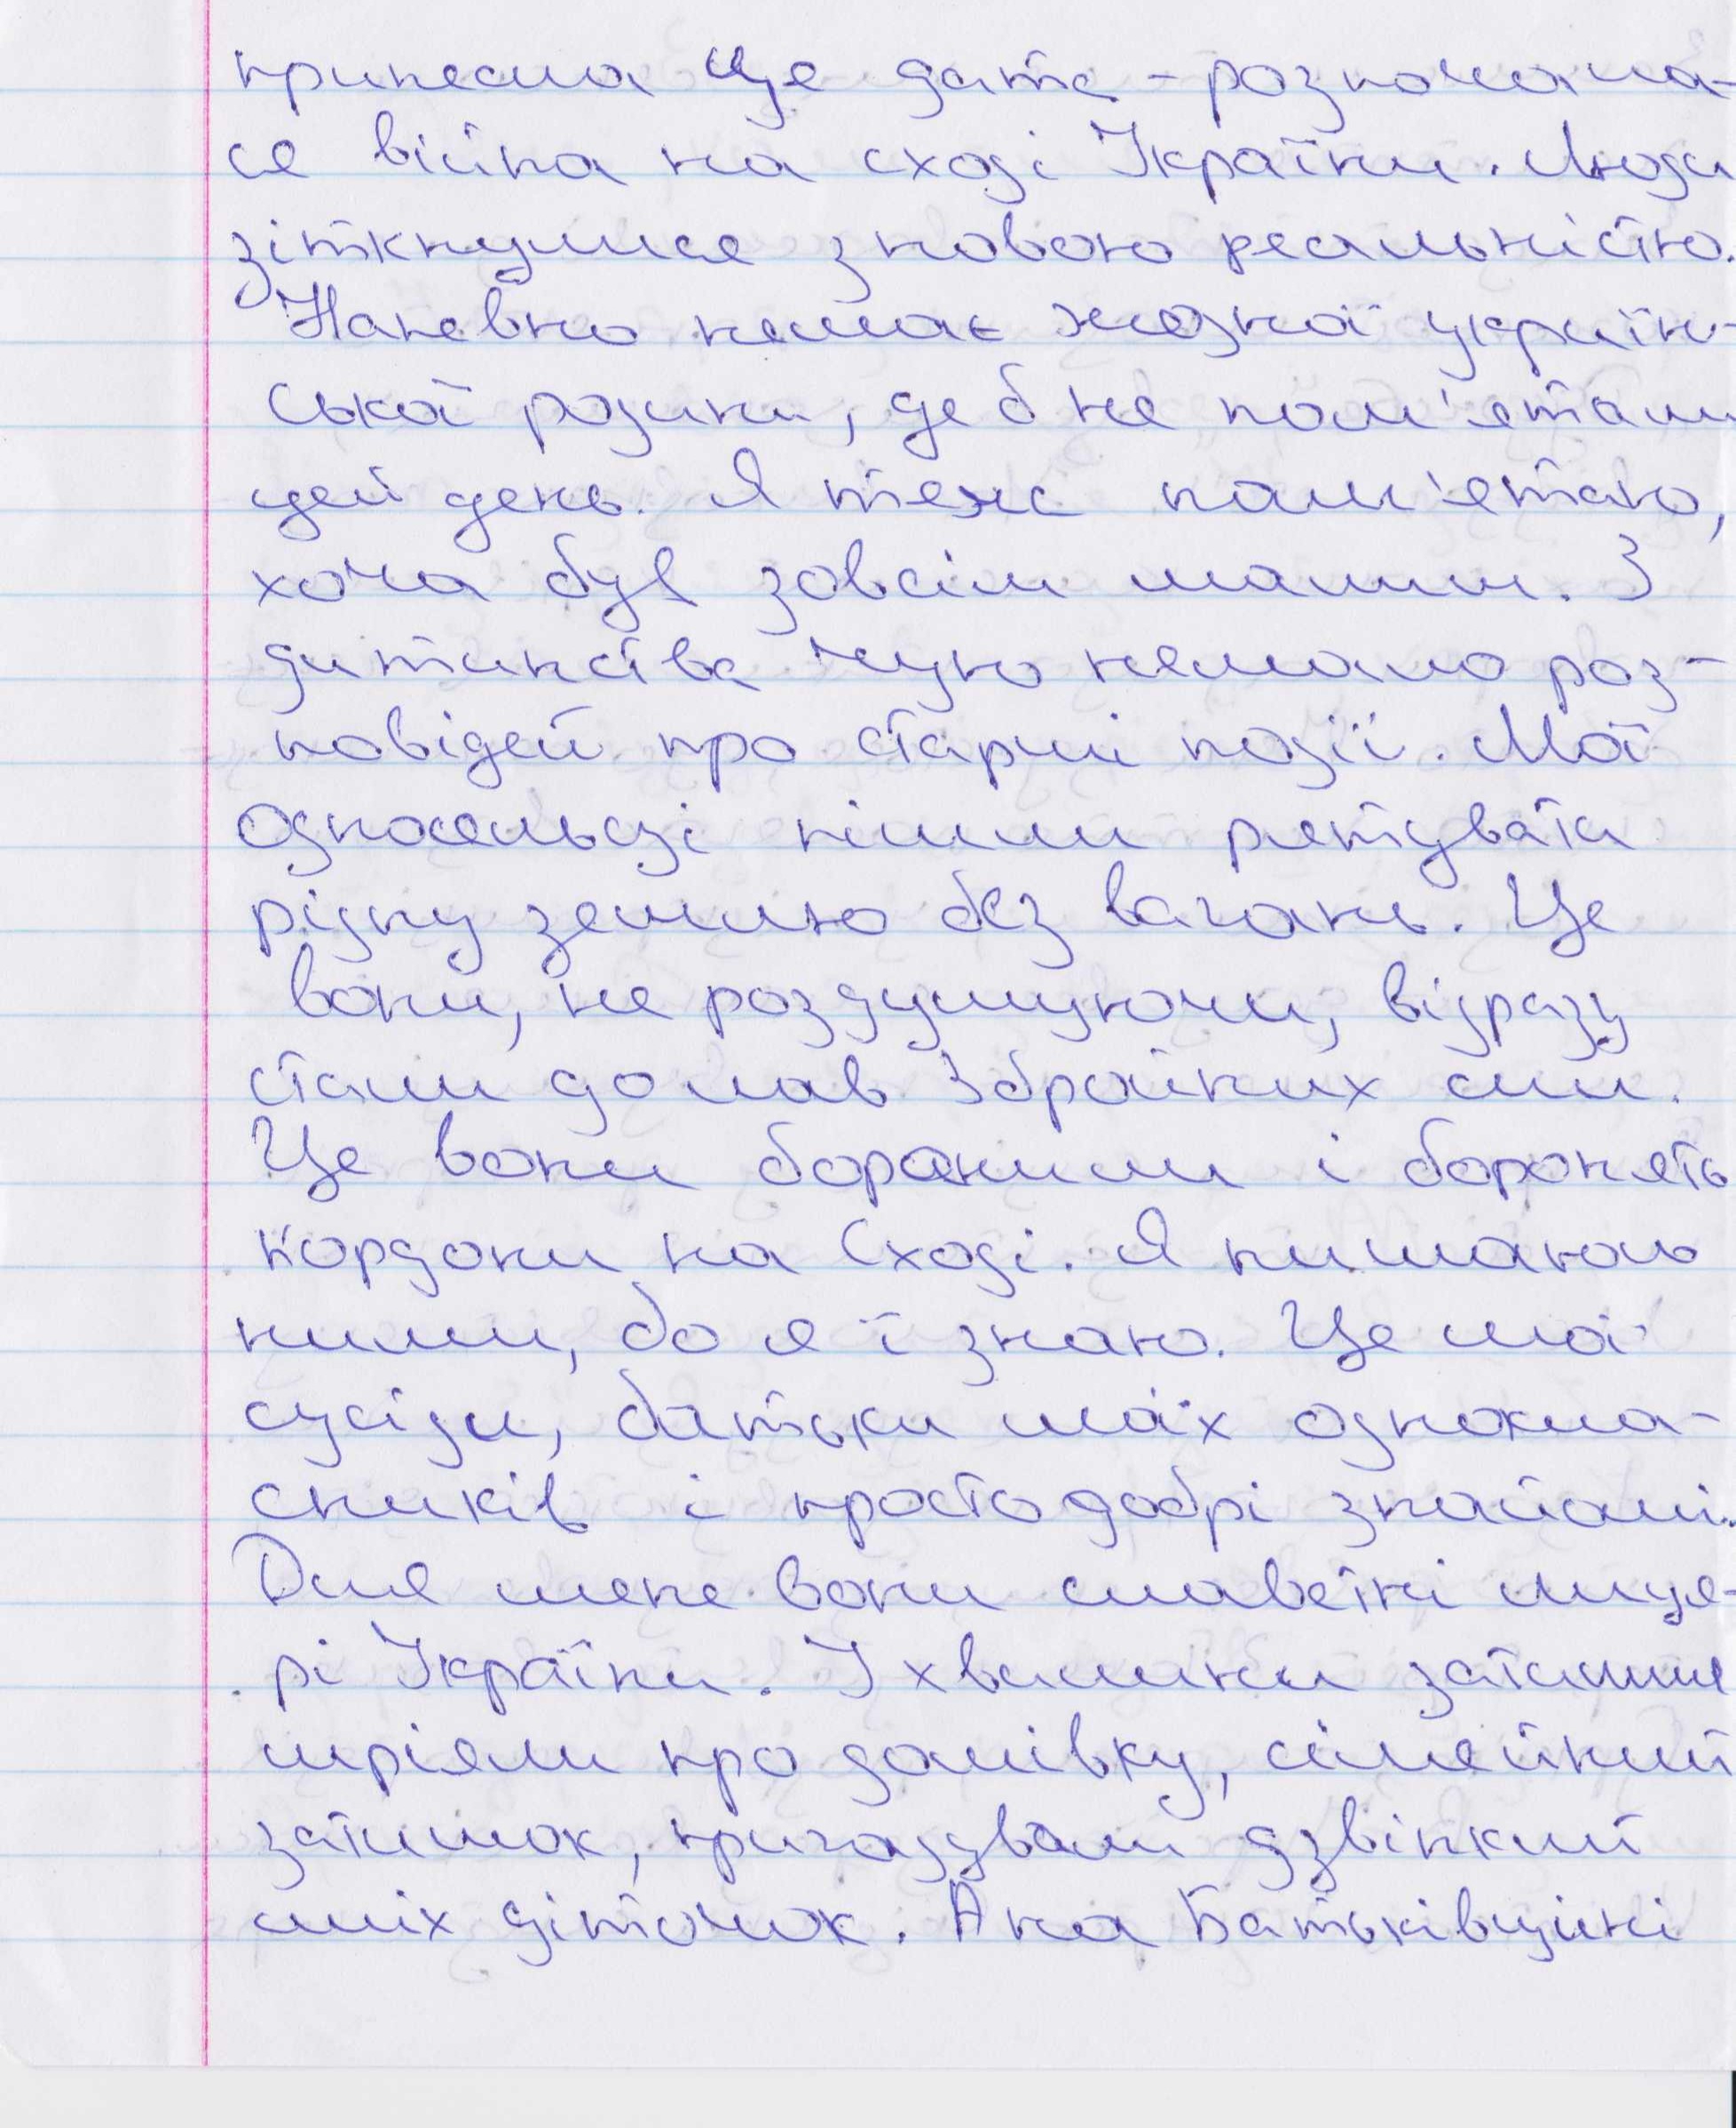 принесла ще дата - розпочала-
ся війна на сході України. Люди
зіткнулися з новою реальністю.
Напевно немає жодної україн-
ської родини, де б не пам'ятали
цей день. Я теж пам'ятаю,
хоча був зовсім малим. З
дитинства чую немало роз-
повідей про старші події. Мої
односельці пішли рятувати
рідну землю без вагань. Це
вони, не роздумуючи, відразу
стали до лав Збройних сил.
Це вони боронили і боронять
кордони на Сході. Я пишаюсь
ними, бо я ї знаю. Це мої
сусіди, батьки моїх однокла-
сників і просто добрі знайомі.
Для мене вони славетні лица-
рі України. У хвилини затишшя
мріяли про домівку, сімейний
затишок, пригадували дзвінкий
сміх діточок. А на Батьківщині